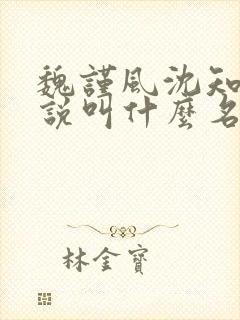 魏謹風沈知
說叫什麼名
林金寶